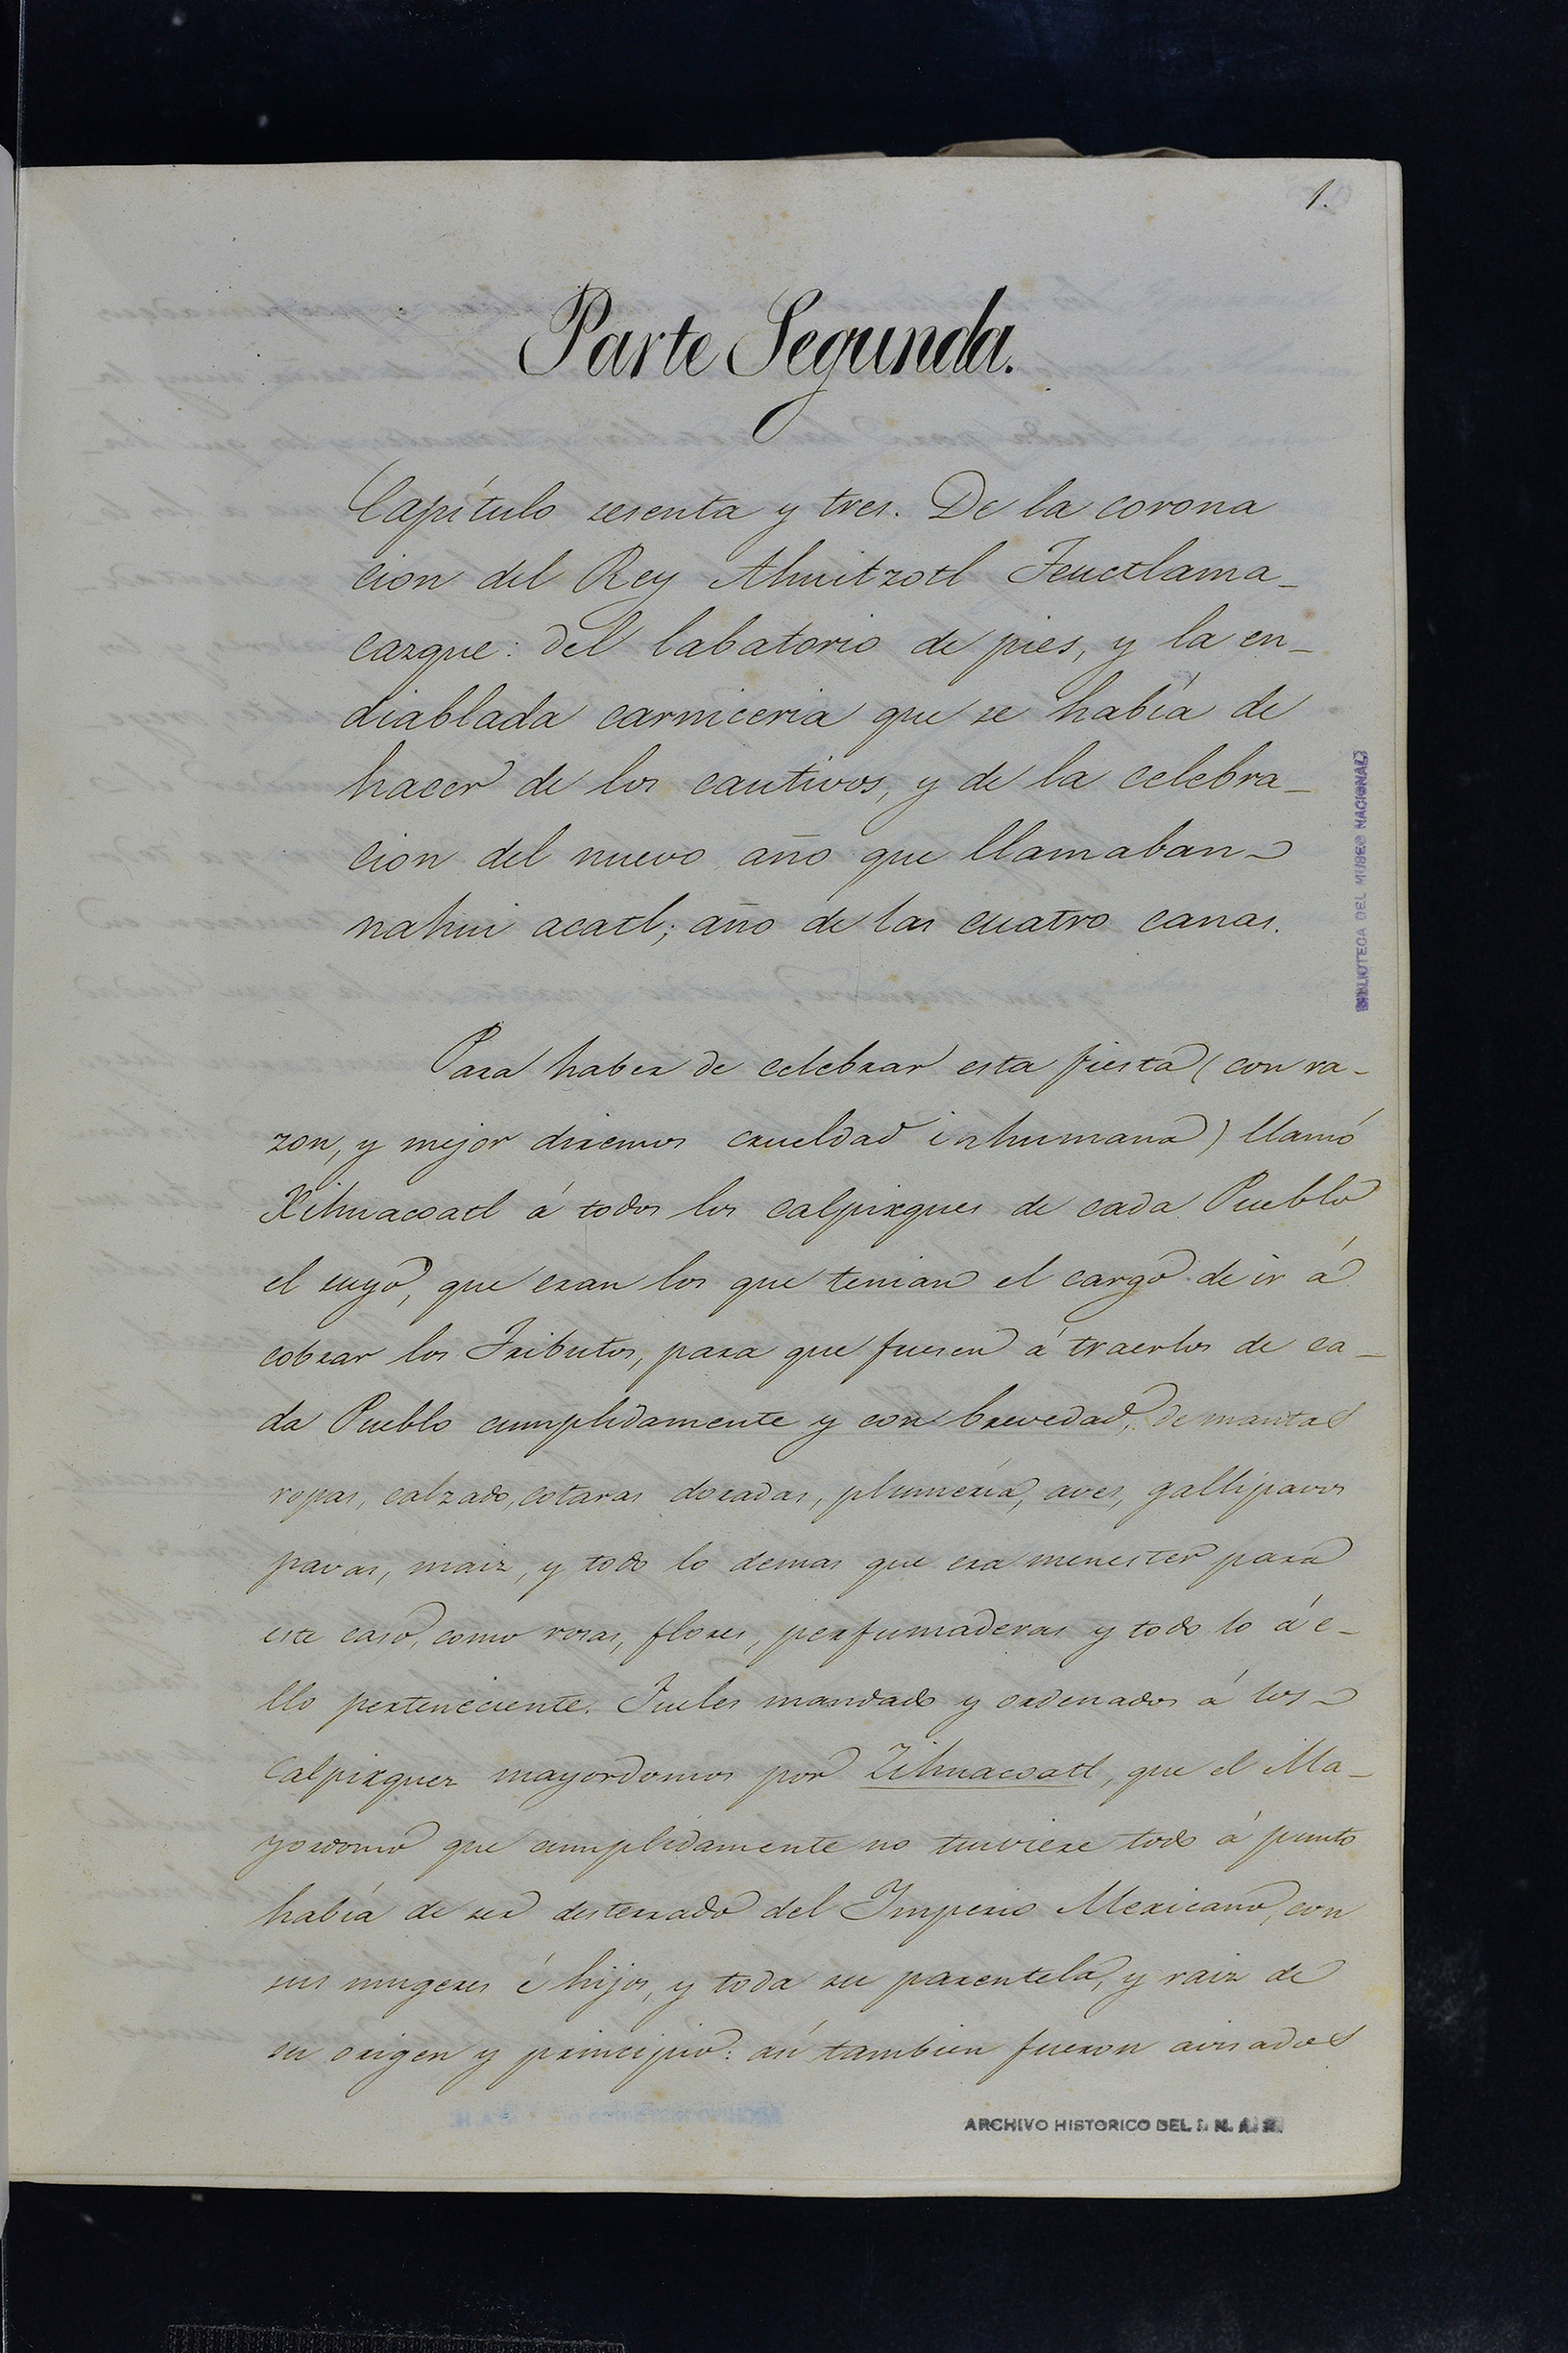 1.
Parte Segunda.
Capítulo sesenta y tres. De la corona
cion del Rey Ahuitzotl Teuctlama_
cazque: del labatorio de pies, y la en_
diablada carniceria que se había de
hacer de los cautivos, y de la celebra_
cion del nuevo año que llamaban_
nahui acatl; año de las cuatro canas.
Para haber de celebrar esta fiesta (con ra_
zon, y mejor diremos crueldad inhumana) llamó
Xihuacoatl á todos los calpixques de cada Pueblo
el suyo, que eran los que tenian el cargo de ir á
cobrar los Tributos, para que fuesen á traerlos de ca_
da Pueblo cumplidamente y con brevedad, de mantas
ropas, calzado, cotaras doradas, plumería, aves, gallipavos
pavas, maiz, y todo lo demas que era menester para
este caso, como rosas, flores, perfumaderas y todo lo á e_
llo perteneciente. Fueles mandado y ordenados á los_
Calpixquez mayordomos por Zihuacoatl, que el Ma_
yordomo que cumplidamente no tuviere todo á punto
había de ser desterrado del Imperio Mexicano, con
sus mugeres é hijos, y toda su parentela, y raiz de
su origen y principio: así tambien fueron avisados
BIBLIOTECA DEL MUSEO NACIONAL
ARCHIVO HISTORICO DEL I. N. A. H.